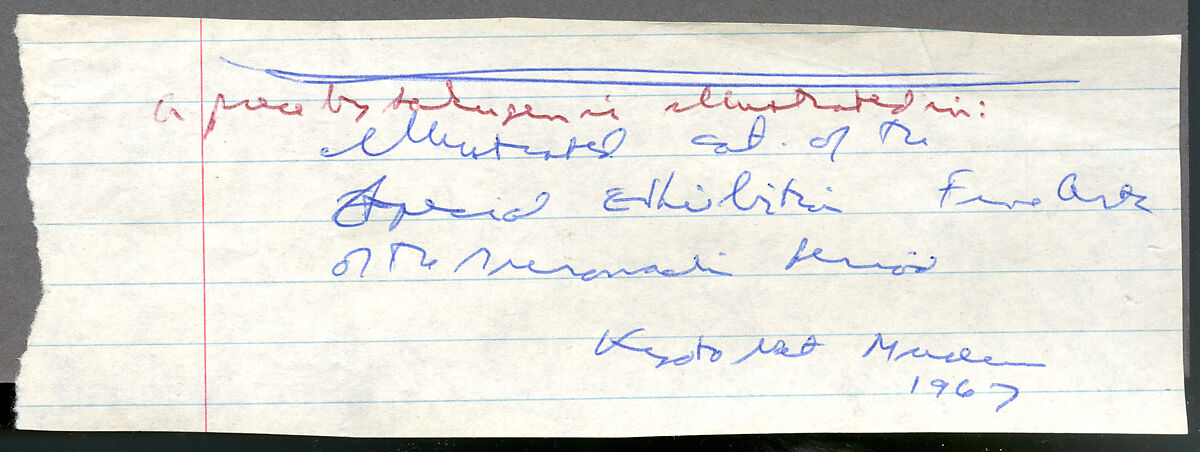 a piece by takugen is illustrated in:
illustrated cat. of the
Special Exhibition Fine Arts
of the Muromachi Period
Kyoto Nat Museum
1967